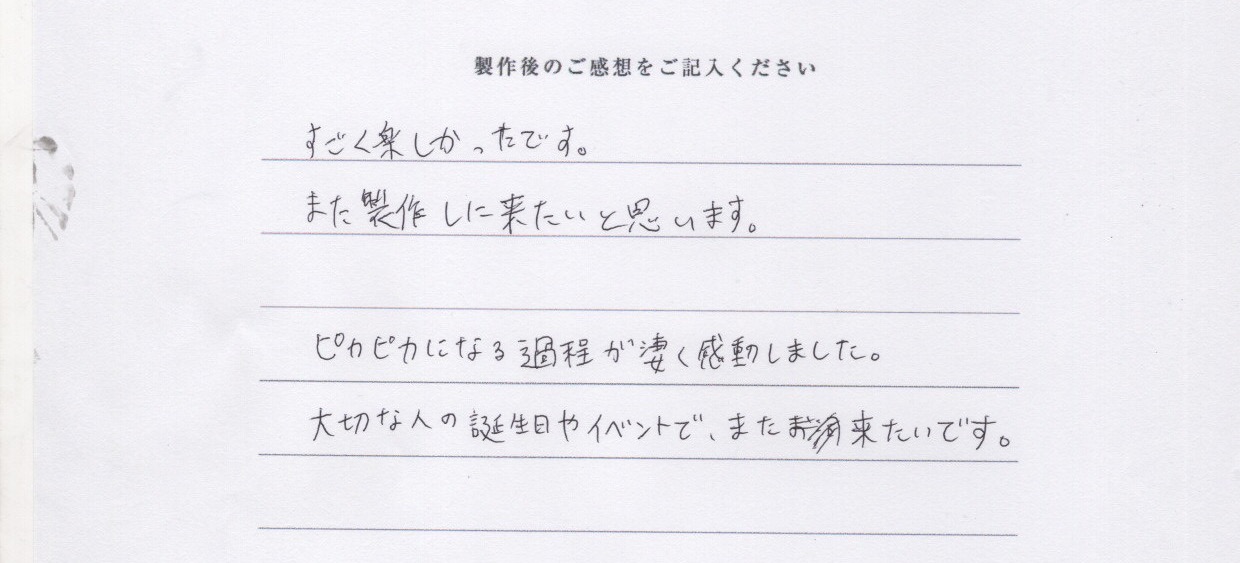 製作後のご感想をご記入ください
すごく楽しかったです。
また製作しに来たいと思います。
ピカピカになる過程が凄く感動しました。
大切な人の誕生日やイベントで、また来たいです。